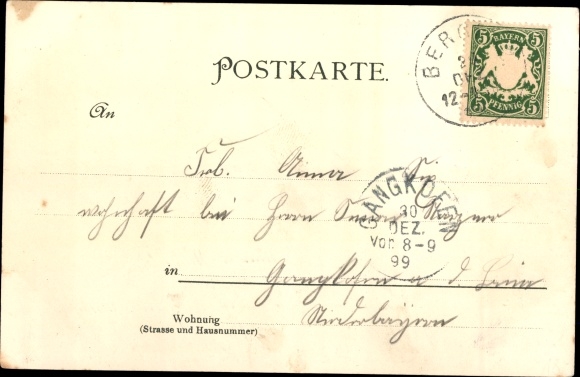 POSTKARTE.
BERG
12
5 BAYERN 5
5 PFENNIG 5
An
Frl. Anna
wohnhaft bei Herrn
GANGKOFEN
30
DEZ.
Vor. 8-9
99
in Gangkofen a. d. Bina
Niederbayern
Wohnung
(Strasse und Hausnummer)